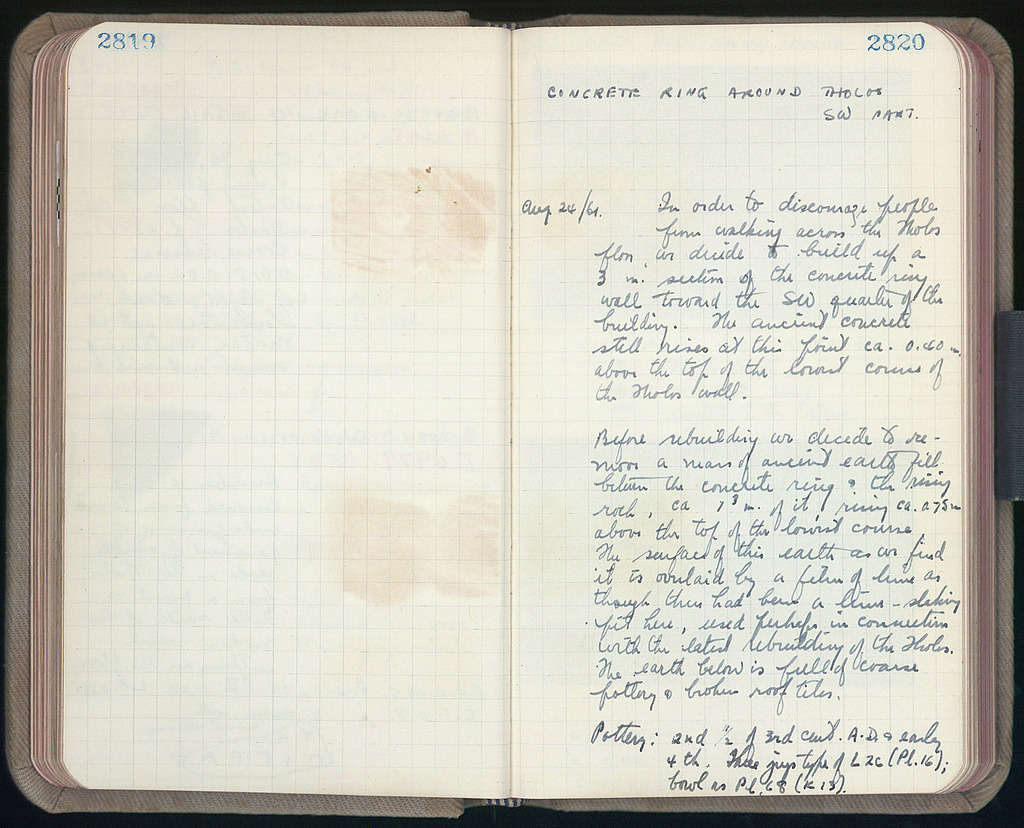 2819
2820
CONCRETE RING AROUND THOLOS
SW PART.
Aug 24/61.
In order to discourage people
from walking across the Tholos
floor, we decide to build up a
3 m. section of the concrete ring
wall toward the SW quarter of the
building. The ancient concrete
still rises at this point ca. 0.40 m.
above the top of the lowest course of
the Tholos wall.
Before rebuilding we decide to re-
move a mass of ancient earth fill
between the concrete ring & the rising
rock, ca 1 3 m. of it, rising ca. 0.75 m
above the top of the lowest course.
The surface of this earth as we find
it is overlaid by a film of lime as
though there had been a lime-slaking
pit here, used perhaps in connection
with the latest rebuilding of the Tholos.
The earth below is full of coarse
pottery & broken roof tiles.
Pottery: 2nd 1/2 of 3rd cent. A.D. & early
4th. Three jugs type of L 26 (Pl. 16);
bowl as Pl. 68 (K 13).